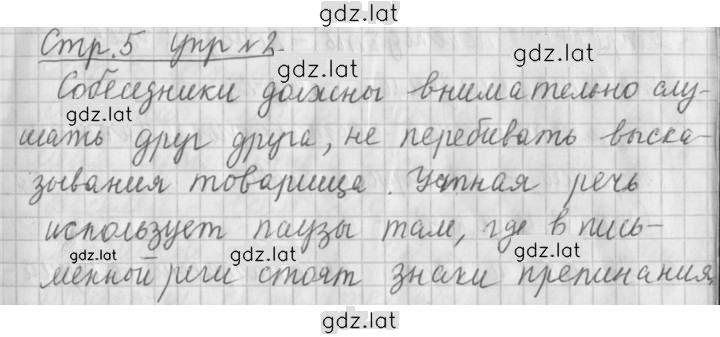 gdz.lat
Стр. 5 упр №2.
gdz.lat
gdz.lat
Собеседники должны внимательно слу-
gdz.lat
шать друг друга, не перебивать выска-
зывания товарища. Устная речь
использует паузы там, где в пись-
gdz.lat
gdz.lat
менной речи стоят знаки препинания,
gdz.lat